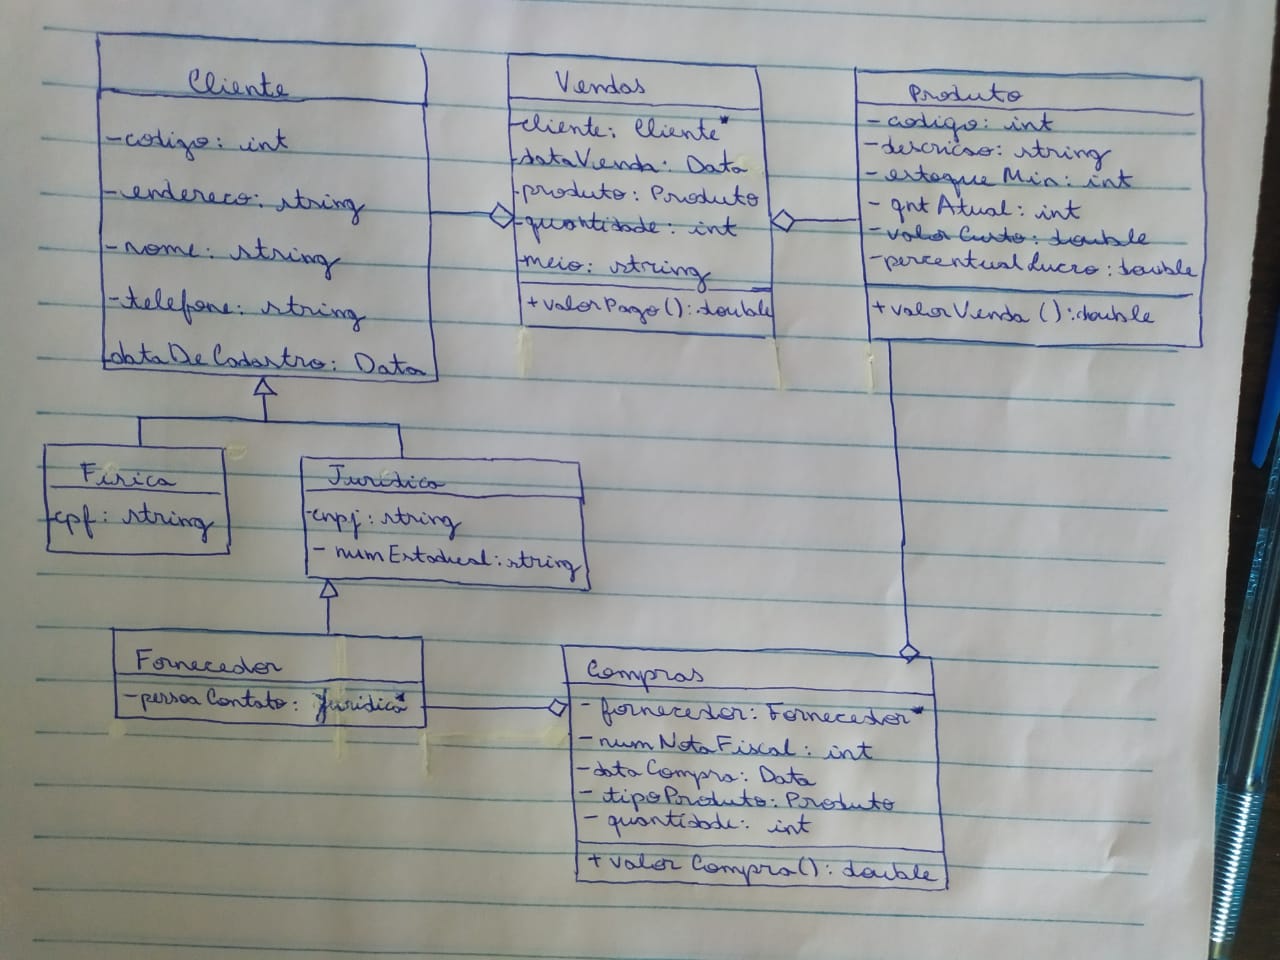 Cliente
-codigo: int
-endereco: string
-nome: string
-telefone: string
-dataDeCadastro: Data
Vendas
-cliente: Cliente*
-dataVenda: Data
-produto: Produto
-quantidade: int
-meio: string
+valorPago(): double
Produto
-codigo: int
-descricao: string
-estoqueMin: int
-qntAtual: int
-valorCusto: double
-percentualLucro: double
+valorVenda (): double
Física
-cpf: string
Jurídica
-cnpj: string
-numEstadual: string
Fornecedor
-pessoaContato: Jurídica*
Compras
-fornecedor: Fornecedor*
-numNotaFiscal: int
-dataCompra: Data
-tipoProduto: Produto
-quantidade: int
+valorCompra(): double